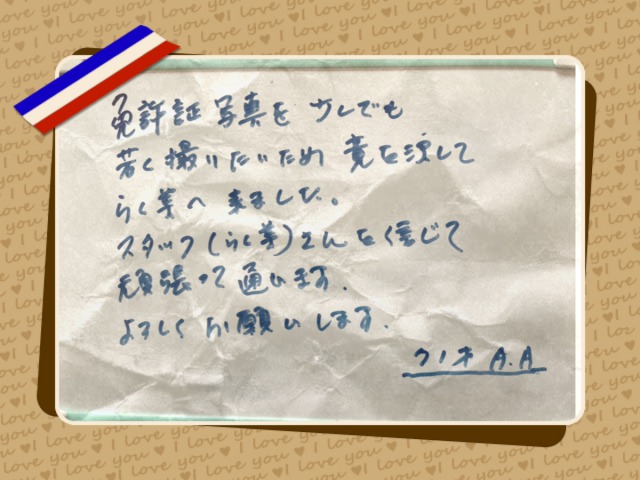 免許証写真を 少しでも
若く撮りたいため 意を決して
らく へ 来ました。
スタッフ(らく )さんを信じて
頑張って通います.
よろしくお願いします.
A.A
I love you